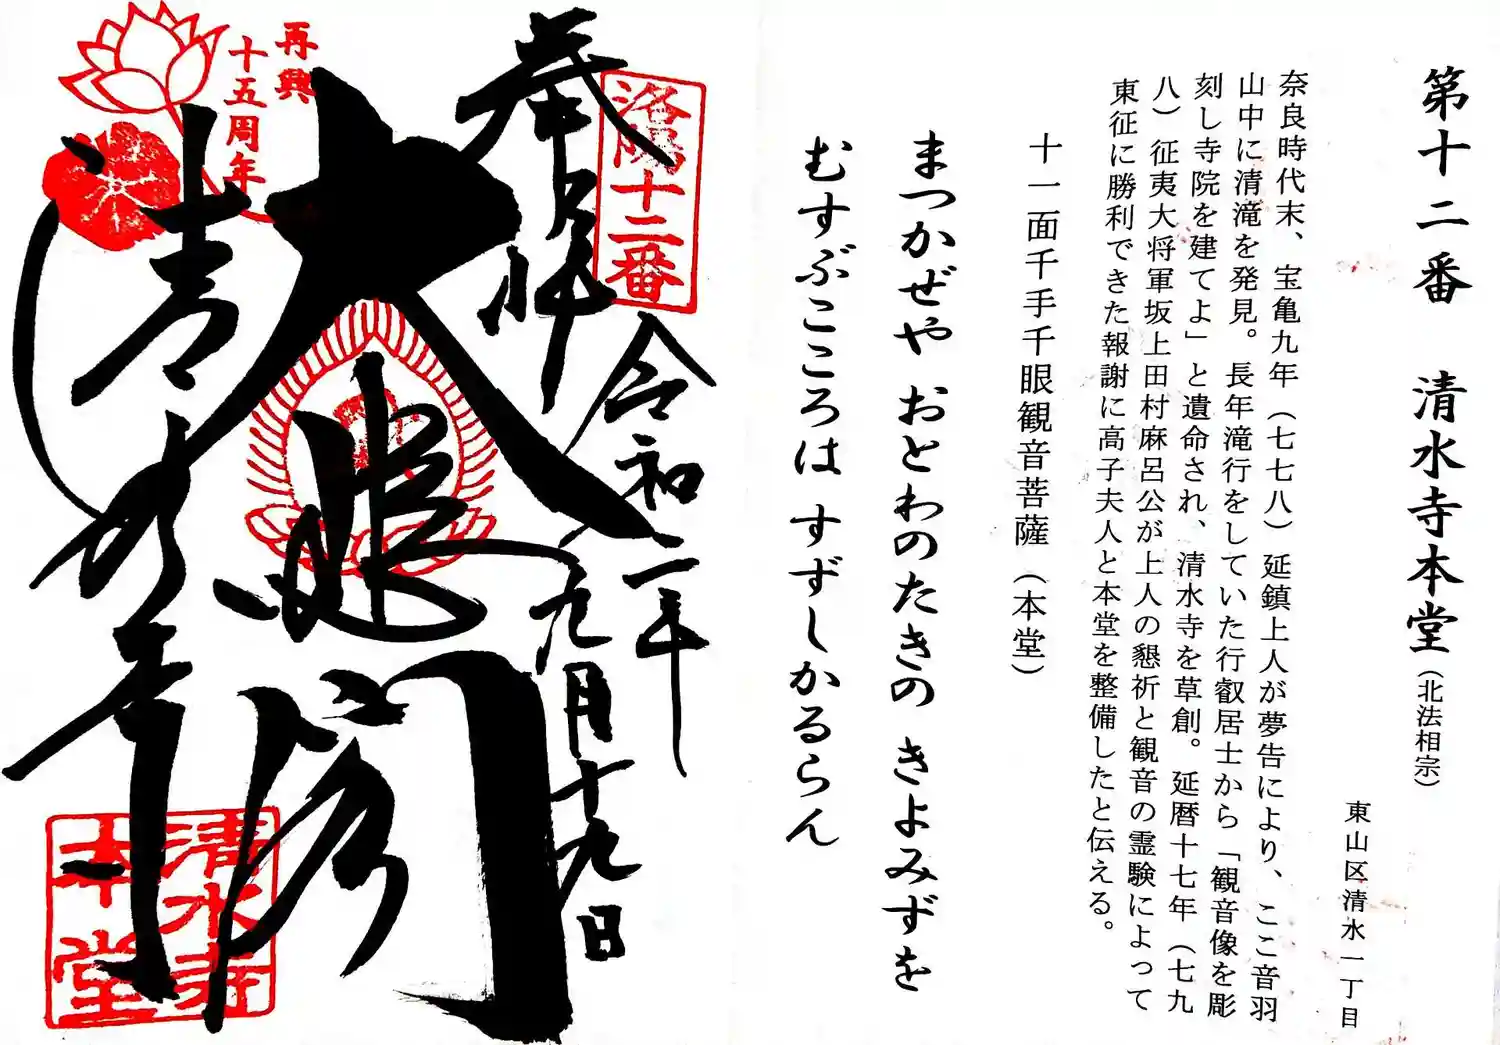 第十二番 清水寺本堂（北法相宗）
東山区清水一丁目
奈良時代末、宝亀九年（七七八）延鎮上人が夢告により、ここ音羽
山中に清滝を発見。長年滝行をしていた行叡居士から「観音像を彫
刻し寺院を建てよ」と遺命され、清水寺を草創。延暦十七年（七九
八）征夷大将軍坂上田村麻呂公が上人の懇祈と観音の霊験によって
東征に勝利できた報謝に高子夫人と本堂を整備したと伝える。
十一面千手千眼観音菩薩（本堂）
まつかぜや おとわのたきの きよみずを
むすぶこころは すずしかるらん
洛陽十二番
奉拝
令和二年
九月十九日
大悲閣
再興
十五周年
清水寺
清水寺
本堂